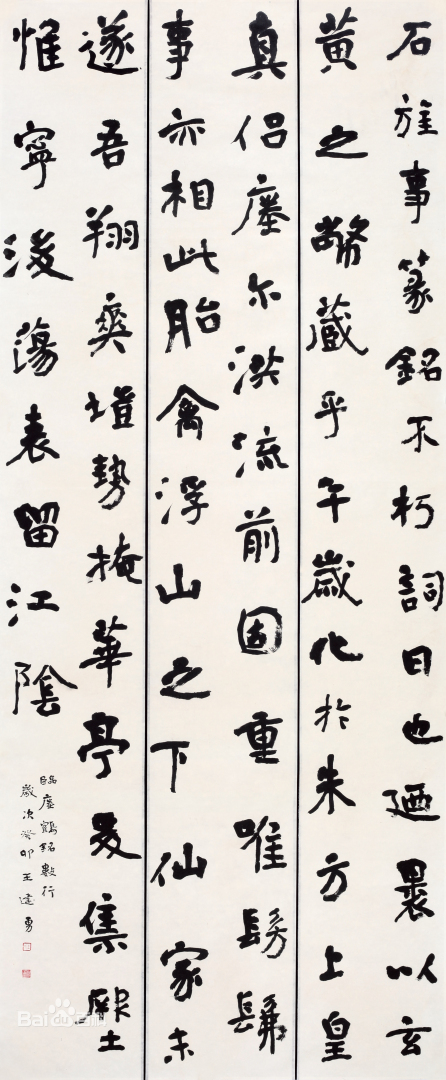 石旌事篆銘不朽詞曰也廼裹以玄
黃之幣藏乎午歲化於朱方上皇
真侶瘞尔洪流前固重唯髣髴
事亦相此胎禽浮山之下仙家未
遂吾翔爽塏勢掩華亭爰集厥土
惟寧後蕩表留江陰
臨瘞鶴銘數行
歲次癸卯王建勇
Bai百科